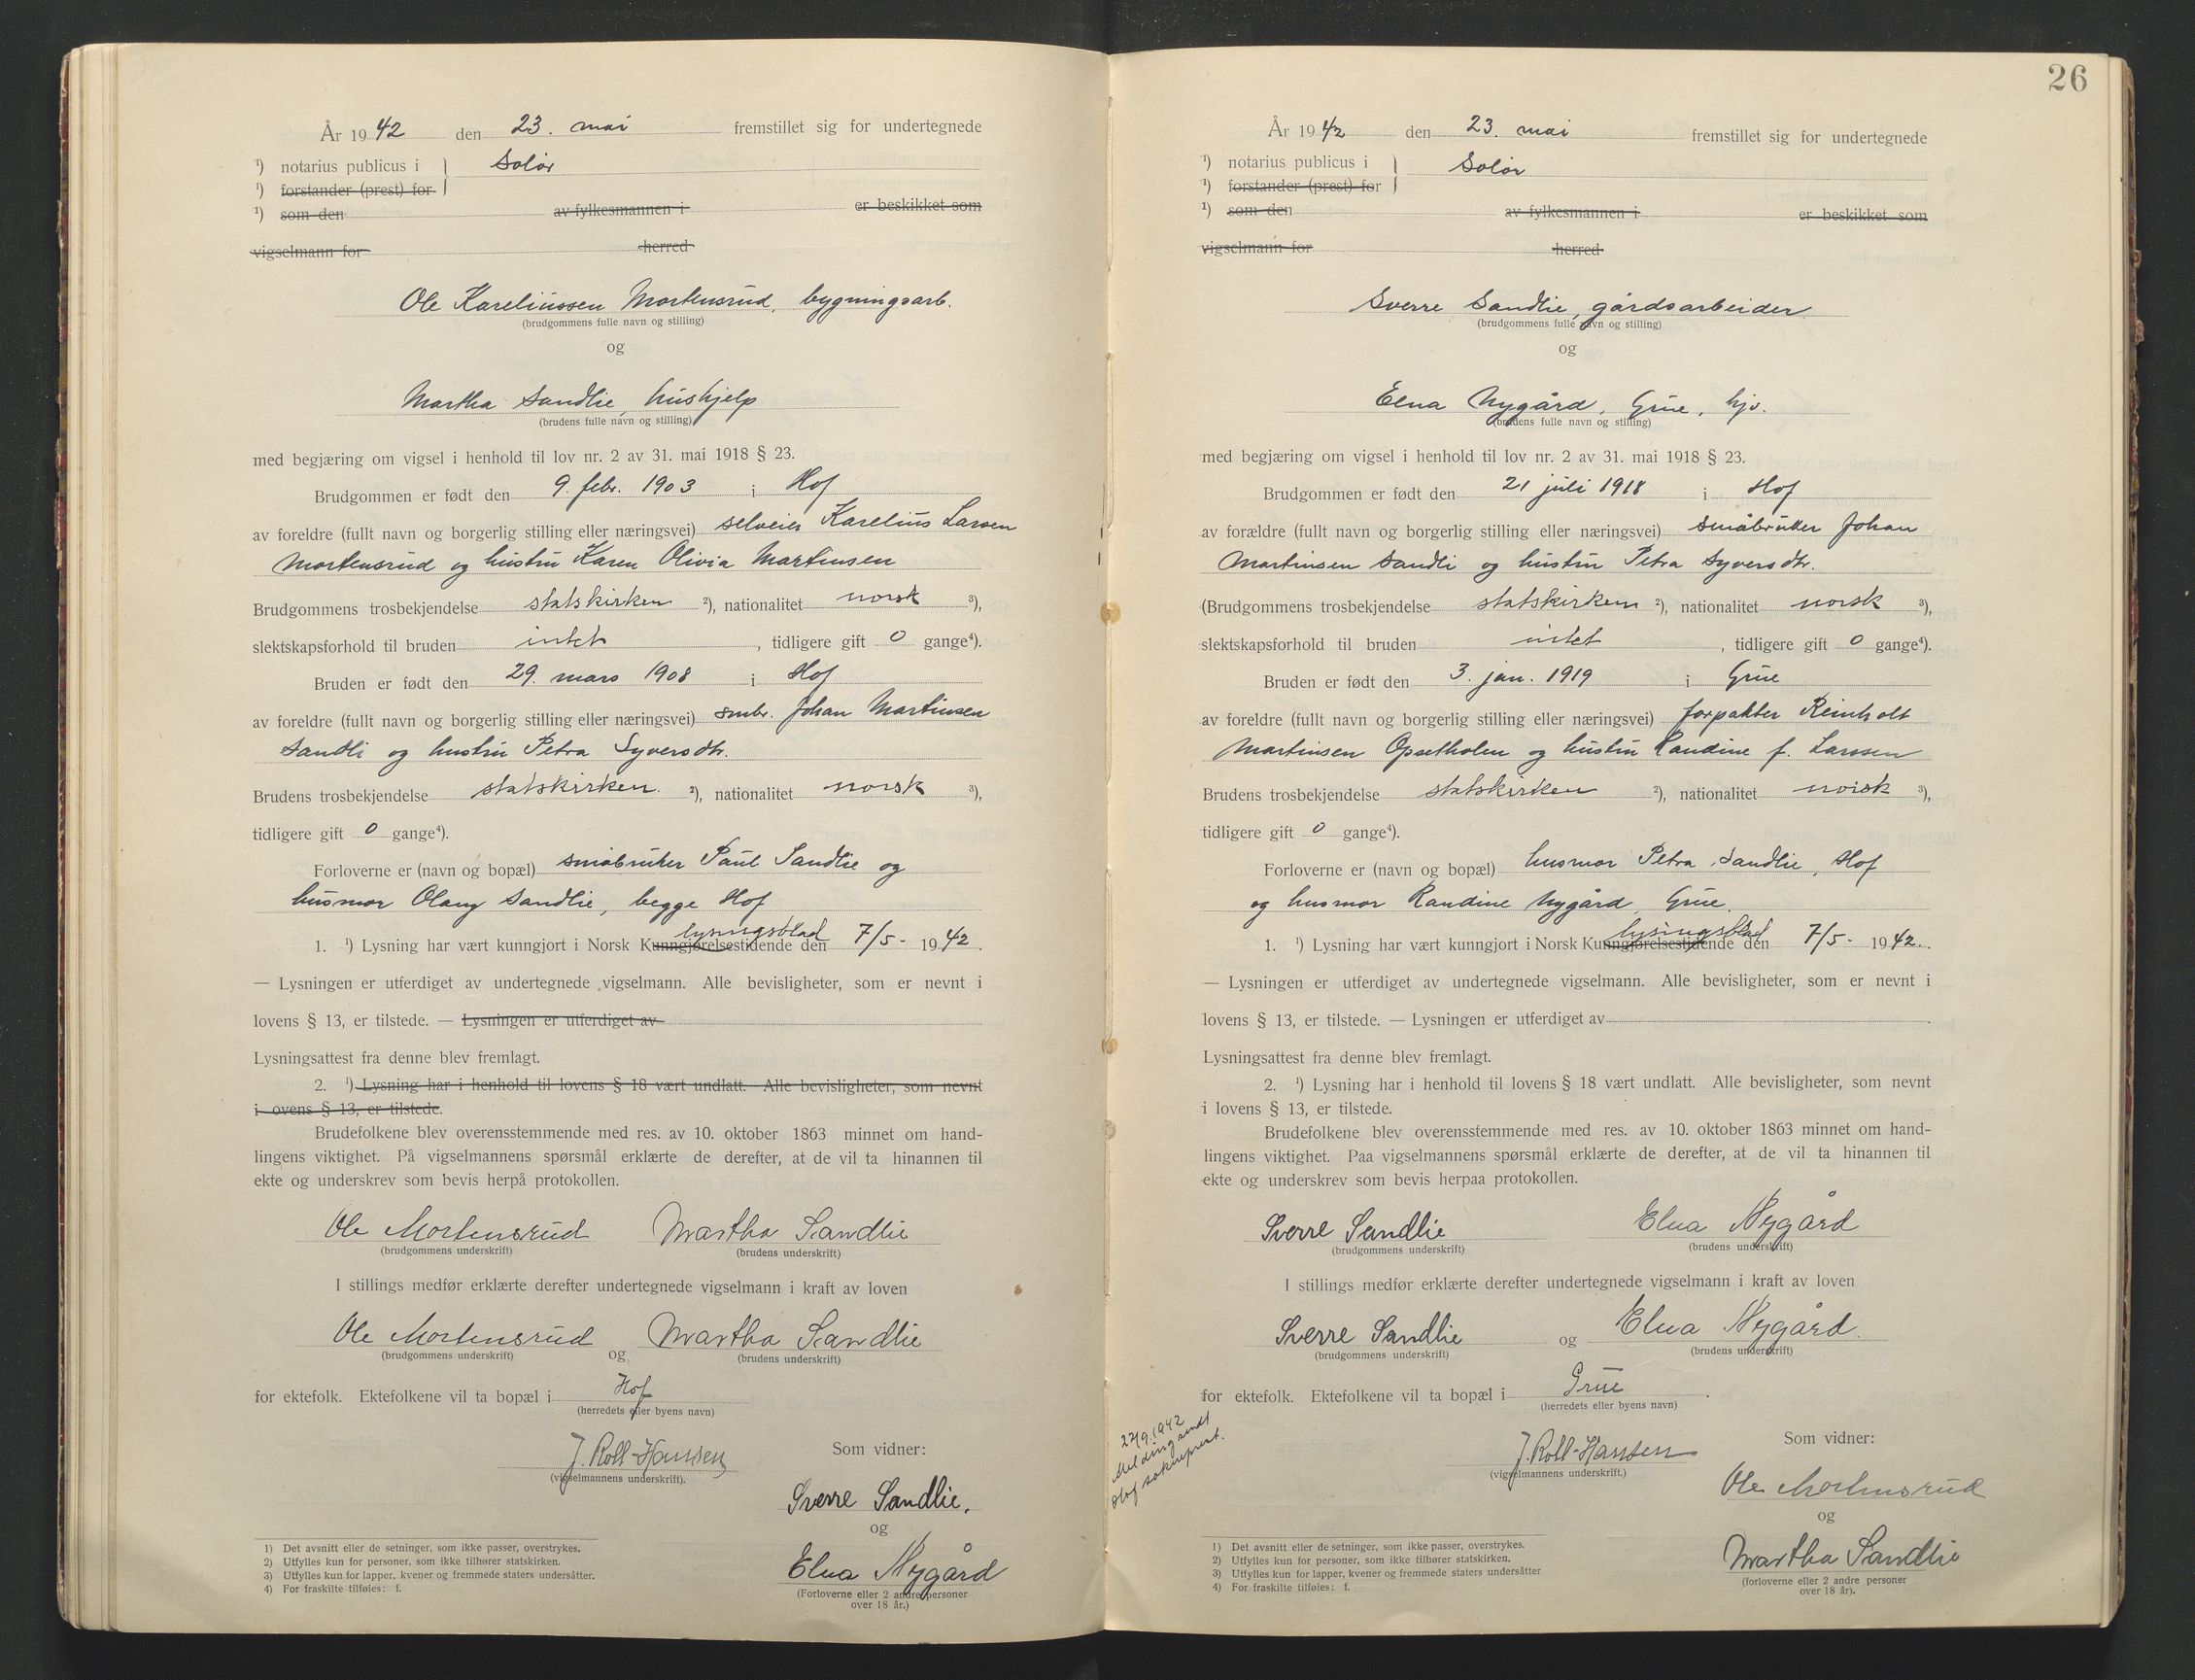 År 1942 den 23. mai fremstillet sig for undertegnede
¹) notarius publicus i } Solør
¹) forstander (prest) for
¹) som den av fylkesmannen i er beskikket som
vigselmann for herred
Ole Kareliussen Mortensrud, bygningsarb.
(brudgommens fulle navn og stilling)
og
Martha Sandlie, hushjelp
(brudens fulle navn og stilling)
med begjæring om vigsel i henhold til lov nr. 2 av 31. mai 1918 § 23.
Brudgommen er født den 9. febr. 1903 i Hof
av foreldre (fullt navn og borgerlig stilling eller næringsvei) selveier Karelius Larsen
Mortensrud og hustru Karen Olivia Martinsen
Brudgommens trosbekjendelse statskirken ²), nationalitet norsk ³),
slektskapsforhold til bruden intet, tidligere gift 0 gange⁴).
Bruden er født den 29. mars 1908 i Hof
av foreldre (fullt navn og borgerlig stilling eller næringsvei) smbr. Johan Martinsen
Sandli og hustru Petra Syversdtr.
Brudens trosbekjendelse statskirken. ²), nationalitet norsk ³),
tidligere gift 0 gange⁴).
Forloverne er (navn og bopæl) småbruker Paul Sandlie og
husmor Olaug Sandlie, begge Hof
lysingsblad
1. ¹) Lysning har vært kunngjort i Norsk Kunngjørelsestidende den 7/5- 1942.
— Lysningen er utferdiget av undertegnede vigselmann. Alle bevisligheter, som er nevnt i
lovens § 13, er tilstede. — Lysningen er utferdiget av
Lysningsattest fra denne blev fremlagt.
2. ¹) Lysning har i henhold til lovens § 18 vært undlatt. Alle bevisligheter, som nevnt
i ovens § 13, er tilstede.
Brudefolkene blev overensstemmende med res. av 10. oktober 1863 minnet om hand-
lingens viktighet. På vigselmannens spørsmål erklærte de derefter, at de vil ta hinannen til
ekte og underskrev som bevis herpå protokollen.
Ole Mortensrud Martha Sandlie
(brudgommens underskrift) (brudens underskrift)
I stillings medfør erklærte derefter undertegnede vigselmann i kraft av loven
Ole Mortensrud og Martha Sandlie
(brudgommens underskrift) (brudens underskrift)
for ektefolk. Ektefolkene vil ta bopæl i Hof
(herredets eller byens navn)
J. Roll-Hansen
(vigselmannens underskrift).
Som vidner:
Sverre Sandlie.
og
Elna Nygård
(Forloverne eller 2 andre personer
over 18 år.)
1) Det avsnitt eller de setninger, som ikke passer, overstrykes.
2) Utfylles kun for personer, som ikke tilhører statskirken.
3) Utfylles kun for lapper, kvener og fremmede staters undersåtter.
4) For fraskilte tilføies: f.
26
År 1942 den 23. mai fremstillet sig for undertegnede
¹) notarius publicus i } Solør
¹) forstander (prest) for
¹) som den av fylkesmannen i er beskikket som
vigselmann for herred
Sverre Sandlie, gårdsarbeider
(brudgommens fulle navn og stilling)
og
Elna Nygård, Grue, hjv.
(brudens fulle navn og stilling)
med begjæring om vigsel i henhold til lov nr. 2 av 31. mai 1918 § 23.
Brudgommen er født den 21 juli 1918 i Hof
av forældre (fullt navn og borgerlig stilling eller næringsvei) småbruker Johan
Martinsen Sandli og hustru Petra Syversdtr.
(Brudgommens trosbekjendelse statskirken ²), nationalitet norsk ³),
slektskapsforhold til bruden intet, tidligere gift 0 gange⁴).
Bruden er født den 3. jan. 1919 i Grue
av foreldre (fullt navn og borgerlig stilling eller næringsvei) forpakter Reinholt
Martinsen Opsetholen og hustru Randine f. Larssen
Brudens trosbekjendelse statskirken ²), nationalitet norsk ³),
tidligere gift 0 gange⁴).
Forloverne er (navn og bopæl) husmor Petra Sandlie, Hof
og husmor Randine Nygård, Grue.
lysingsblad
1. ¹) Lysning har vært kunngjort i Norsk Kunngjørelsestidende den 7/5- 1942.
— Lysningen er utferdiget av undertegnede vigselmann. Alle bevisligheter, som er nevnt i
lovens § 13, er tilstede. — Lysningen er utferdiget av
Lysningsattest fra denne blev fremlagt.
2. ¹) Lysning har i henhold til lovens § 18 vært undlatt. Alle bevisligheter, som nevnt
i lovens § 13, er tilstede.
Brudefolkene blev overensstemmende med res. av 10. oktober 1863 minnet om hand-
lingens viktighet. Paa vigselmannens spørsmål erklærte de derefter, at de vil ta hinannen til
ekte og underskrev som bevis herpaa protokollen.
Sverre Sandlie Elna Nygård
(brudgommens underskrift) (brudens underskrift)
I stillings medfør erklærte derefter undertegnede vigselmann i kraft av loven
Sverre Sandlie og Elna Nygård
(brudgommens underskrift) (brudens underskrift)
for ektefolk. Ektefolkene vil ta bopæl i Grue.
(herredets eller byens navn)
22/9.1942
Melding sendt
Hof sokneprest.
J. Roll-Hansen
(vigselmannens underskrift.)
Som vidner:
Ole Mortensrud
og
Martha Sandlie
(forloverne eller 2 andre personer
over 18 år).
1) Det avsnitt eller de setninger, som ikke passer, overstrykes.
2) Utfylles kun for personer, som ikke tilhører statskirken.
3) Utfylles kun for lapper, kvener og fremmede staters undersåtter
4) For fraskilte tilføies: f.